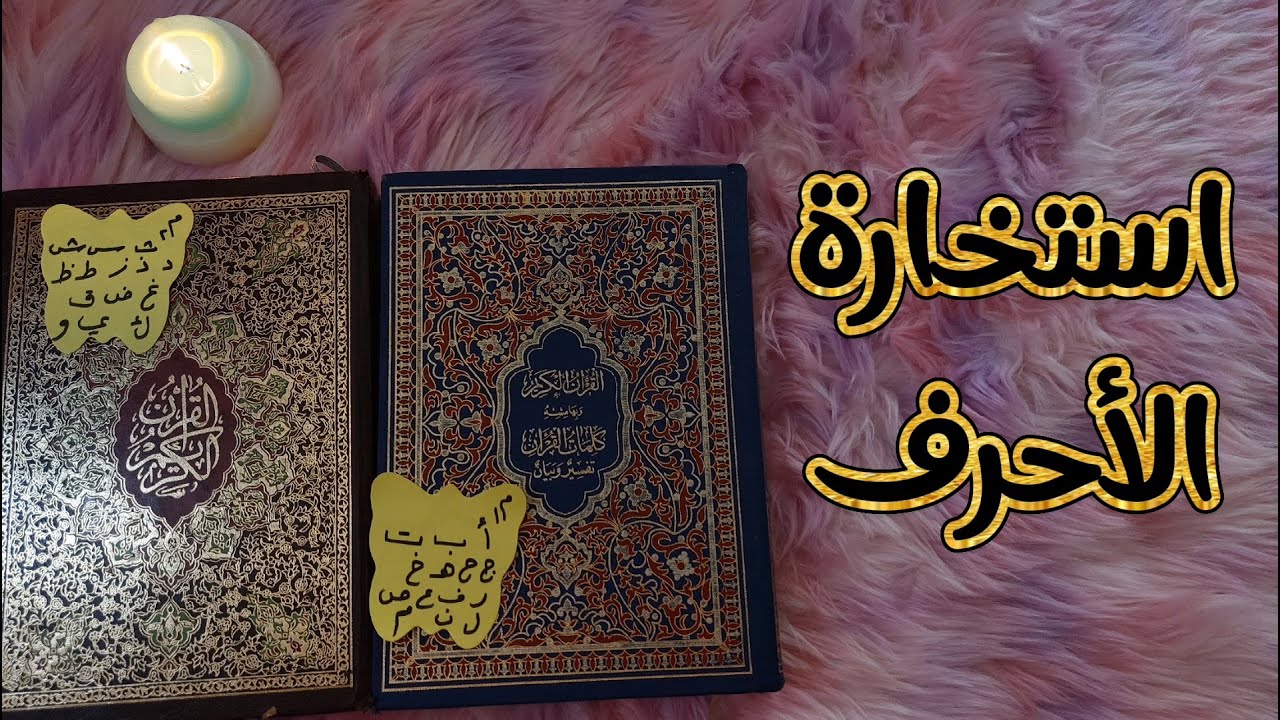 استخارة
الأحرف
القرآن الكريم
وبهامشه
كلمات القرآن
تفسير وبيان
م١
أ ب ت
ج ح هـ خ
ر ف ع ص
ل ن م
القرآن
الكريم
م٢
ث س ش
د ذ ز ط ظ
غ ض ق
ك ي و